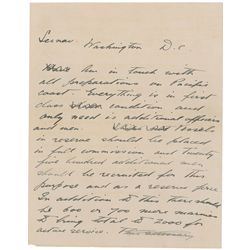 Secnav Washington D.C.
Am in touch with
all preparations on Pacific
coast. Everything is in first
class condition and
only need is additional officers
and men. Vessels
in reserve should be placed
in full commission and twenty
five hundred additional men
should be recruited for this
purpose and as a reserve force
In addition to this there should
be 600 or 700 more marines
to bring total to 2000 for
active service.